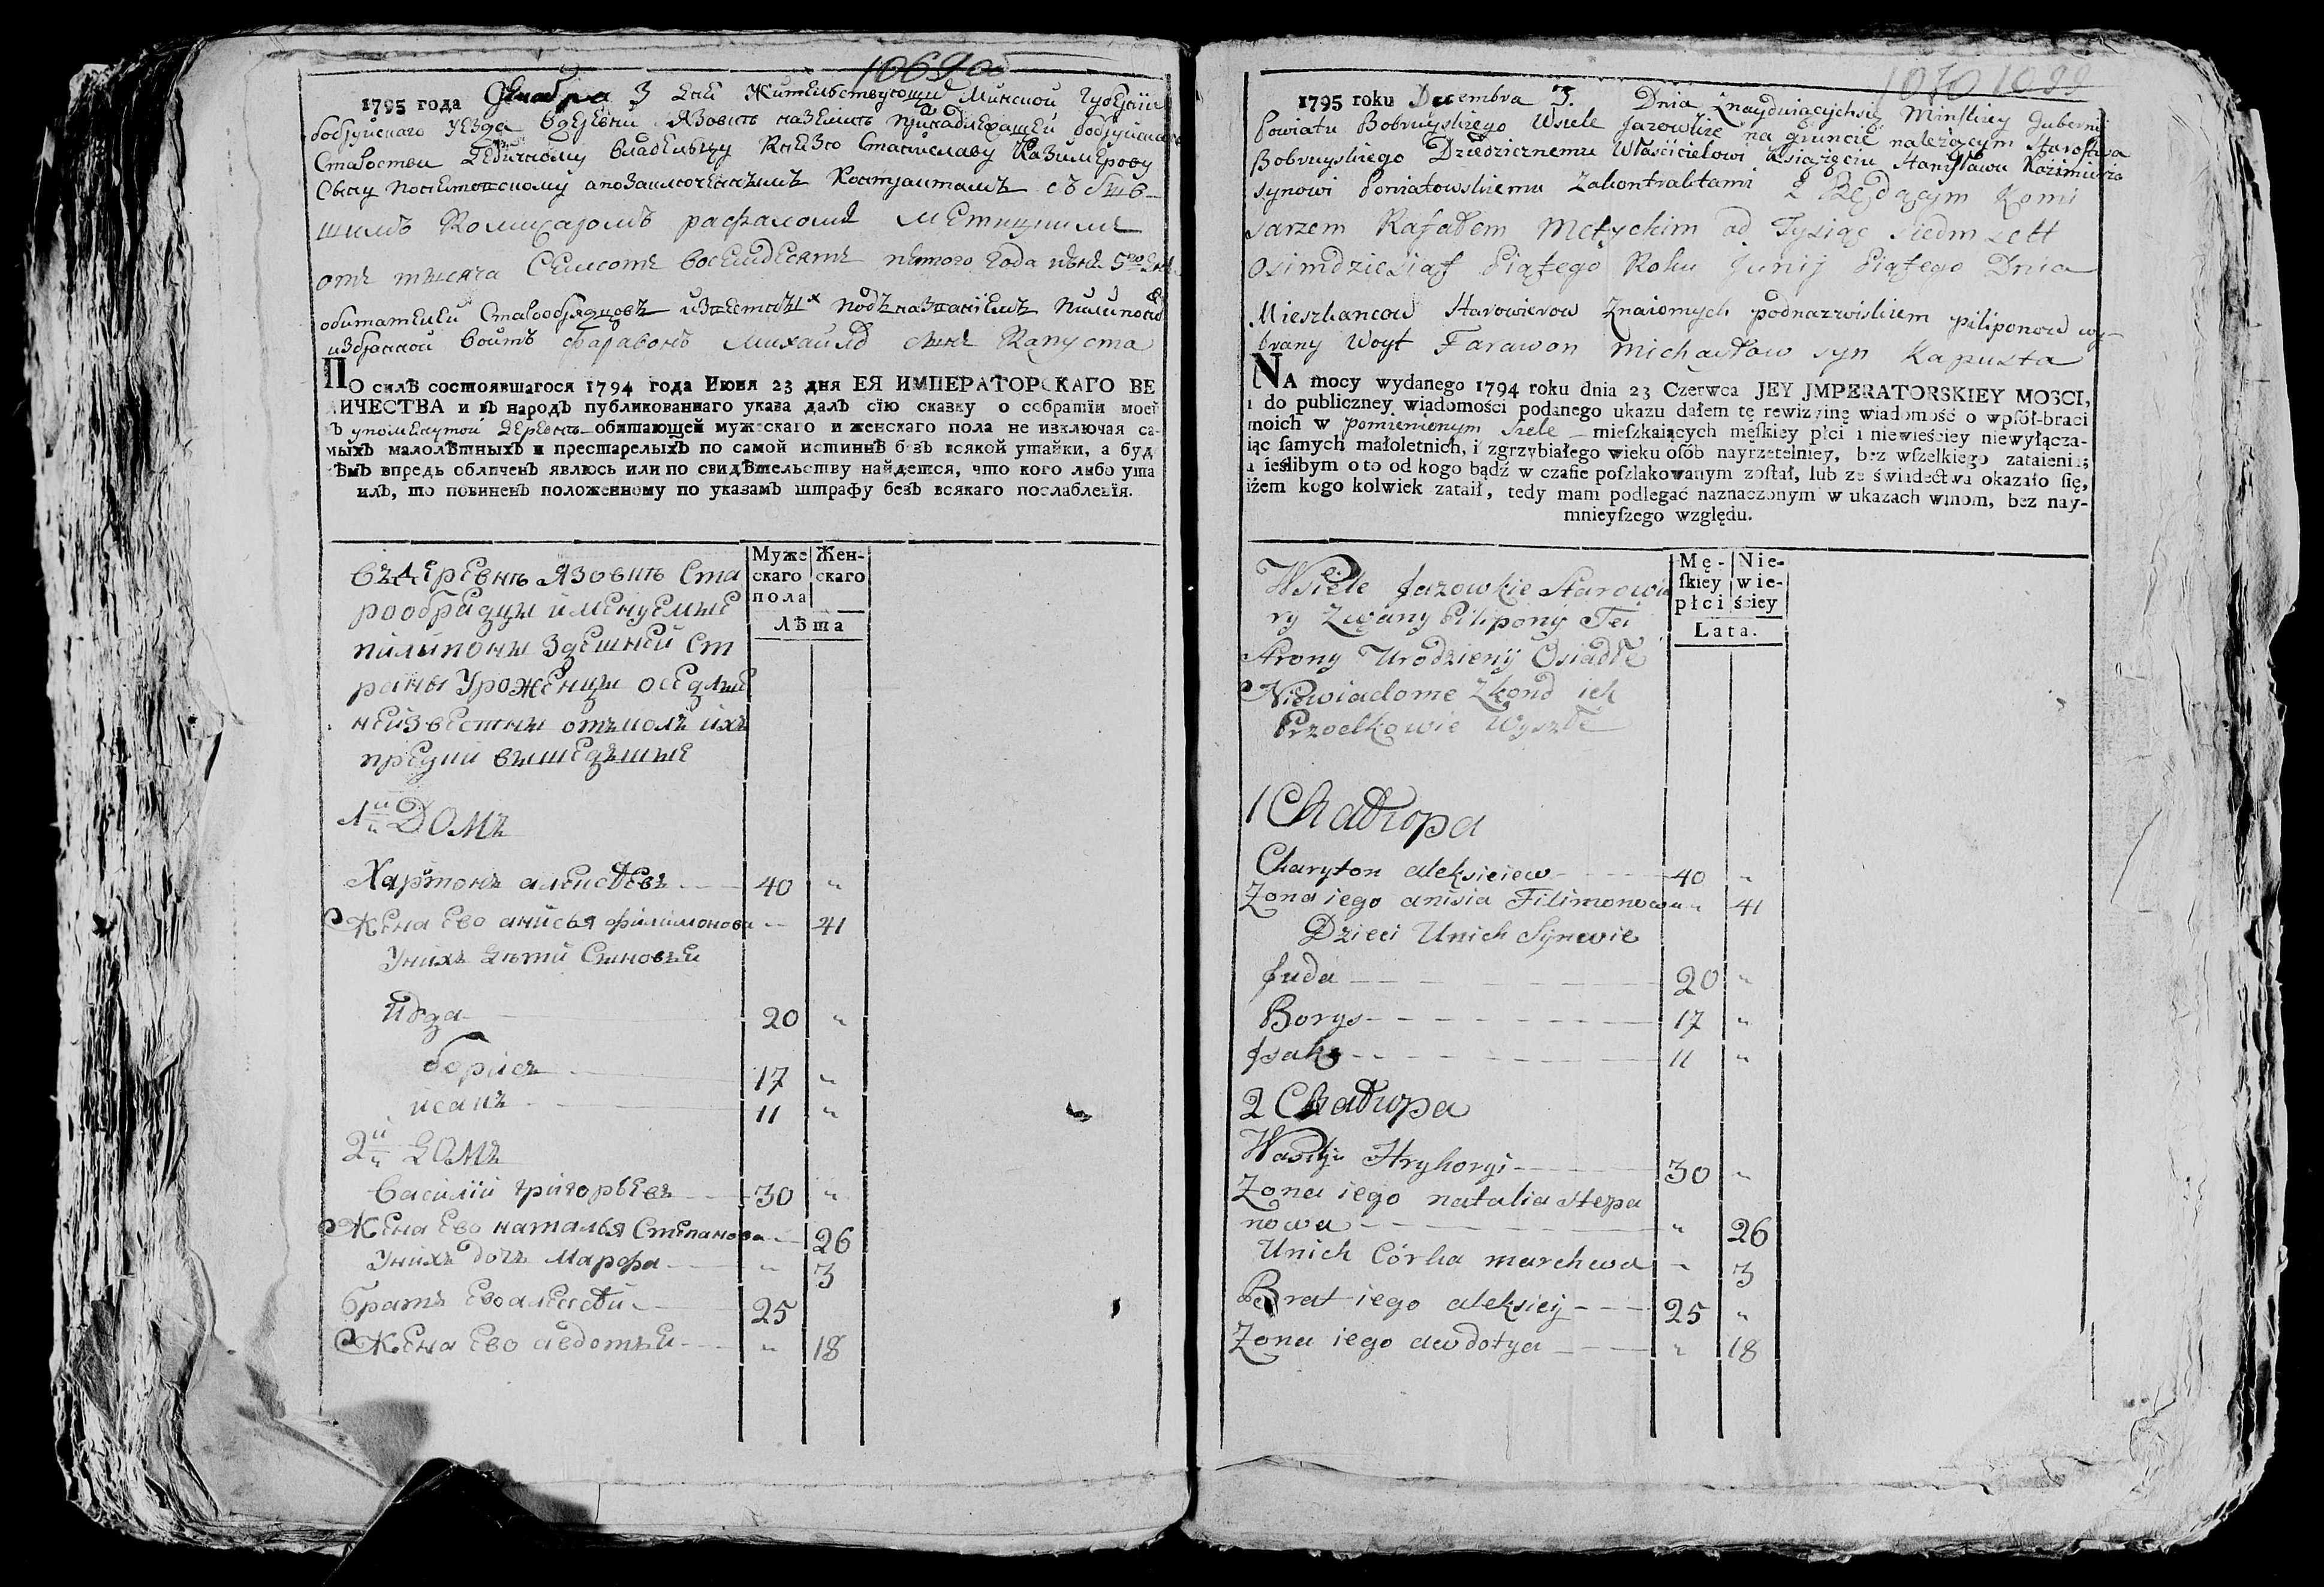 1069 об
1795 года Декабра 3 дня Жительствующия Минской Губернїи
бобруйского уезда вдеревни Язовить наземить принадлежащей бобруйскаго
Староства Дедичному владельцу Князю Станиславу Казимерову
Сыну понетовскому апозаключеннымъ Контрактамъ съ быв-
шимъ Комисаромъ рафаломъ Метицкимъ
отъ тысяча Семсотъ восемдесятъ пятого года июня 5го дня
обитателей Старообрядцовъ известныхъ подъ названїемъ пилипоновъ
избранной войтъ фаравонъ Михайловъ сынъ Капуста
ПО силѣ состоявшагося 1794 года Июня 23 дня ЕЯ ИМПЕРАТОРСКАГО ВЕ
ЛИЧЕСТВА и въ народъ публикованнаго указа далъ сїю сказку о собратїи моей
въ упоменутой деревнѣ обитающей мужескаго и женскаго пола не изключая са-
мыхъ малолѣтныхъ и престарелыхъ по самой истиннѣ безъ всякой утайки, а буд
чѣмъ впредь обличенъ явлюсь или по свидѣтельству найдется, что кого либо ута
илъ, то повиненъ положенному по указамъ штрафу безъ всякаго послабленїя.
Муже Жен-
скаго скаго
пола
Лѣта
въ деревнѣ Язовить Ста
рообрядцы именуемые
пилипоны здешней ст
раны Уроженцы оседлые
неизвестны откуль ихъ
предки вышедшые
1й Домъ
Харитонъ алексеевъ 40 "
Жена Ево анисья филимонова " 41
Унихъ дѣти Сыновьи
Июда 20 "
борисъ 17 "
исакъ 11 "
2й Домъ
Василий григорьевъ 30 "
Жена Ево наталья Степанова " 26
Унихъ дочь Марфа " 3
братъ Ево алексей 25
Жена Ево авдотьи " 18
1070 1099
1795 roku Decembra 3. Dnia Znayduiącychsię Minskiey Gubernij
Powiatu Bobruyskiego Wsiele Jazowkie na gruncie należącym Starostwa
Bobruyskiego Dziedzicznemu Właścicielowi Xsiążęciu Stanisławu Kazimierza
synowi Poniatowskiemu Zakontraktami z Będącym Komi
sarzem Rafałem Metyckim od Tysiąc siedm sett
Osimdziesiąt Piątego Roku Junij Piątego Dnia
Mieszkancow Starowierow Znaiomych podnazwiskiem piliponow wy-
brany Woyt Farawon Michayłow syn Kapusta
NA mocy wydanego 1794 roku dnia 23 Czerwca JEY JMPERATORSKIEY MOSCI,
i do publiczney wiadomości podanego ukazu dałem tę rewizyinę wiadomość o wpſół-braci
moich w pomienionym siele mieſzkaiących męſkiey płci i niewieściey niewyłącza-
iąc ſamych małoletnich, i zgrzybiałego wieku oſób nayrzetelniey, bez wſzelkiego zataienia;
a ieſlibym o to od kogo bądź w czaſie poſzlakowanym zoſtał, lub ze świadectwa okazało ſię,
iżem kogo kolwiek zataił, tedy mam podlegać naznaczonym w ukazach winom, bez nay-
mnieyſzego względu.
Mę- Nie-
ſkiey wie-
płci ściey
Lata.
Wsiele Jazowkie Starowie
ry Zwany Pilipony Tei
Strony Urodzieny Osiadłe
Niewiadome Zkond ich
Przodkowie Wyszłe
1 Chałupa
Charyton aleksieiew 40 "
Zona iego anisia Filimonowa " 41
Dzieci Unich Synowie
Juda 20 "
Borys 17 "
Jsak 11 "
2 Chałupa
Wasilyi Hryhoryi 30 "
Zona iego natalia Stepa
nowa " 26
Unich Córka marchwa " 3
Brat iego aleksiey 25 "
Zona iego awdotya " 18